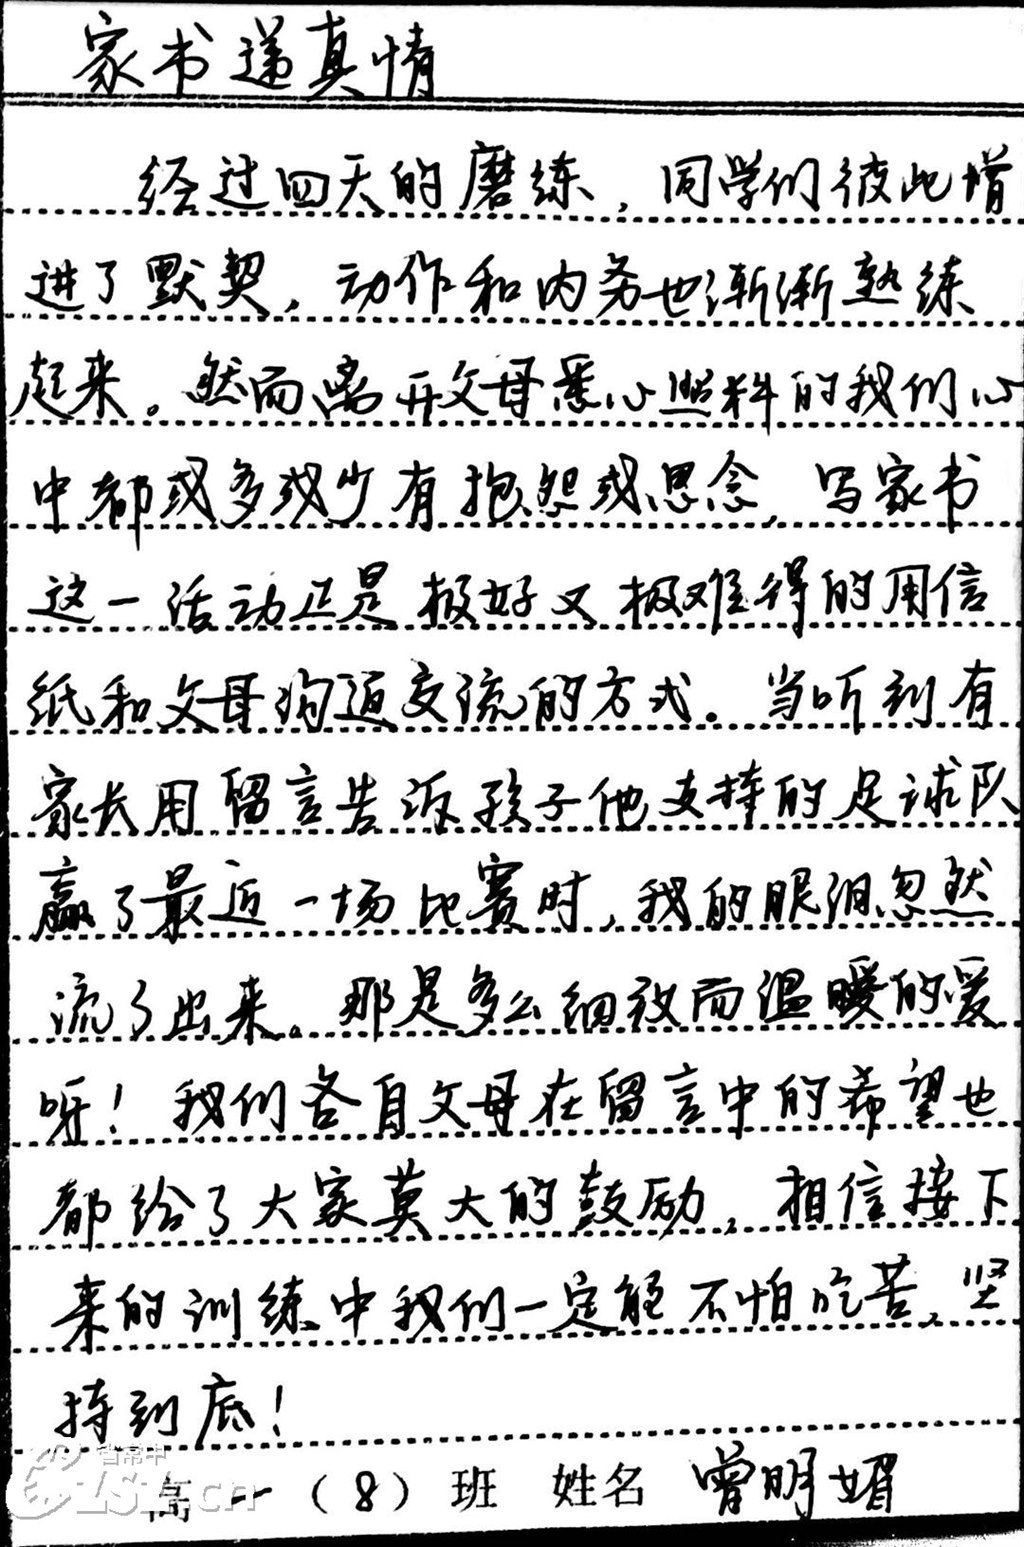 家书递真情
经过四天的磨练，同学们彼此增
进了默契，动作和内务也渐渐熟练
起来。然而离开父母悉心照料的我们心
中都或多或少有抱怨或思念，写家书
这一活动正是极好又极难得的用信
纸和父母沟通交流的方式。当听到有
家长用留言告诉孩子他支持的足球队
赢了最近一场比赛时，我的眼泪忽然
流了出来。那是多么细致而温暖的爱
呀！我们各自父母在留言中的希望也
都给了大家莫大的鼓励，相信接下
来的训练中我们一定能不怕吃苦、坚
持到底！
省常中
高一（8）班 姓名 曾明媚